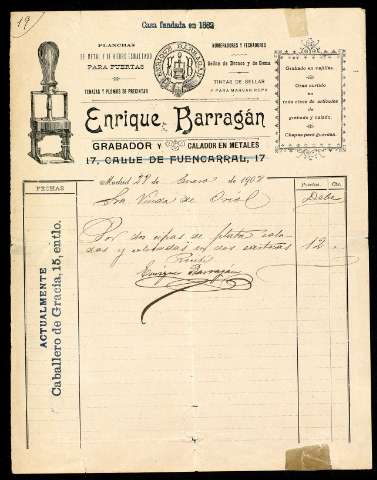 19
Casa fundada en 1882
PLANCHAS
DE METAL Y DE HIERRO ESMALTADO
PARA PUERTAS
TENAZAS Y PLOMOS DE PRECINTAR
ENRIQUE BARRAGAN
E B
NUMERADORES Y FECHADORES
CON
Sellos de Bronce y de Goma
TINTAS DE SELLAR
Y PARA MARCAR ROPA
Grabado en vajillas.
Gran surtido
en
toda clase de artículos
de
grabado y calado.
Chapas para guardas.
Enrique Barragán
GRABADOR Y CALADOR EN METALES
17, CALLE DE FUENCARRAL, 17
Madrid 28 de Enero de 1902
FECHAS
Pesetas. Cts.
Sra Viuda de Oñal Debe
Por dos cifras de plata cala-
das y colocadas en dos carteras 12
Recibí
Enrique Barragan
ACTUALMENTE
Caballero de Gracia, 15, entlo.